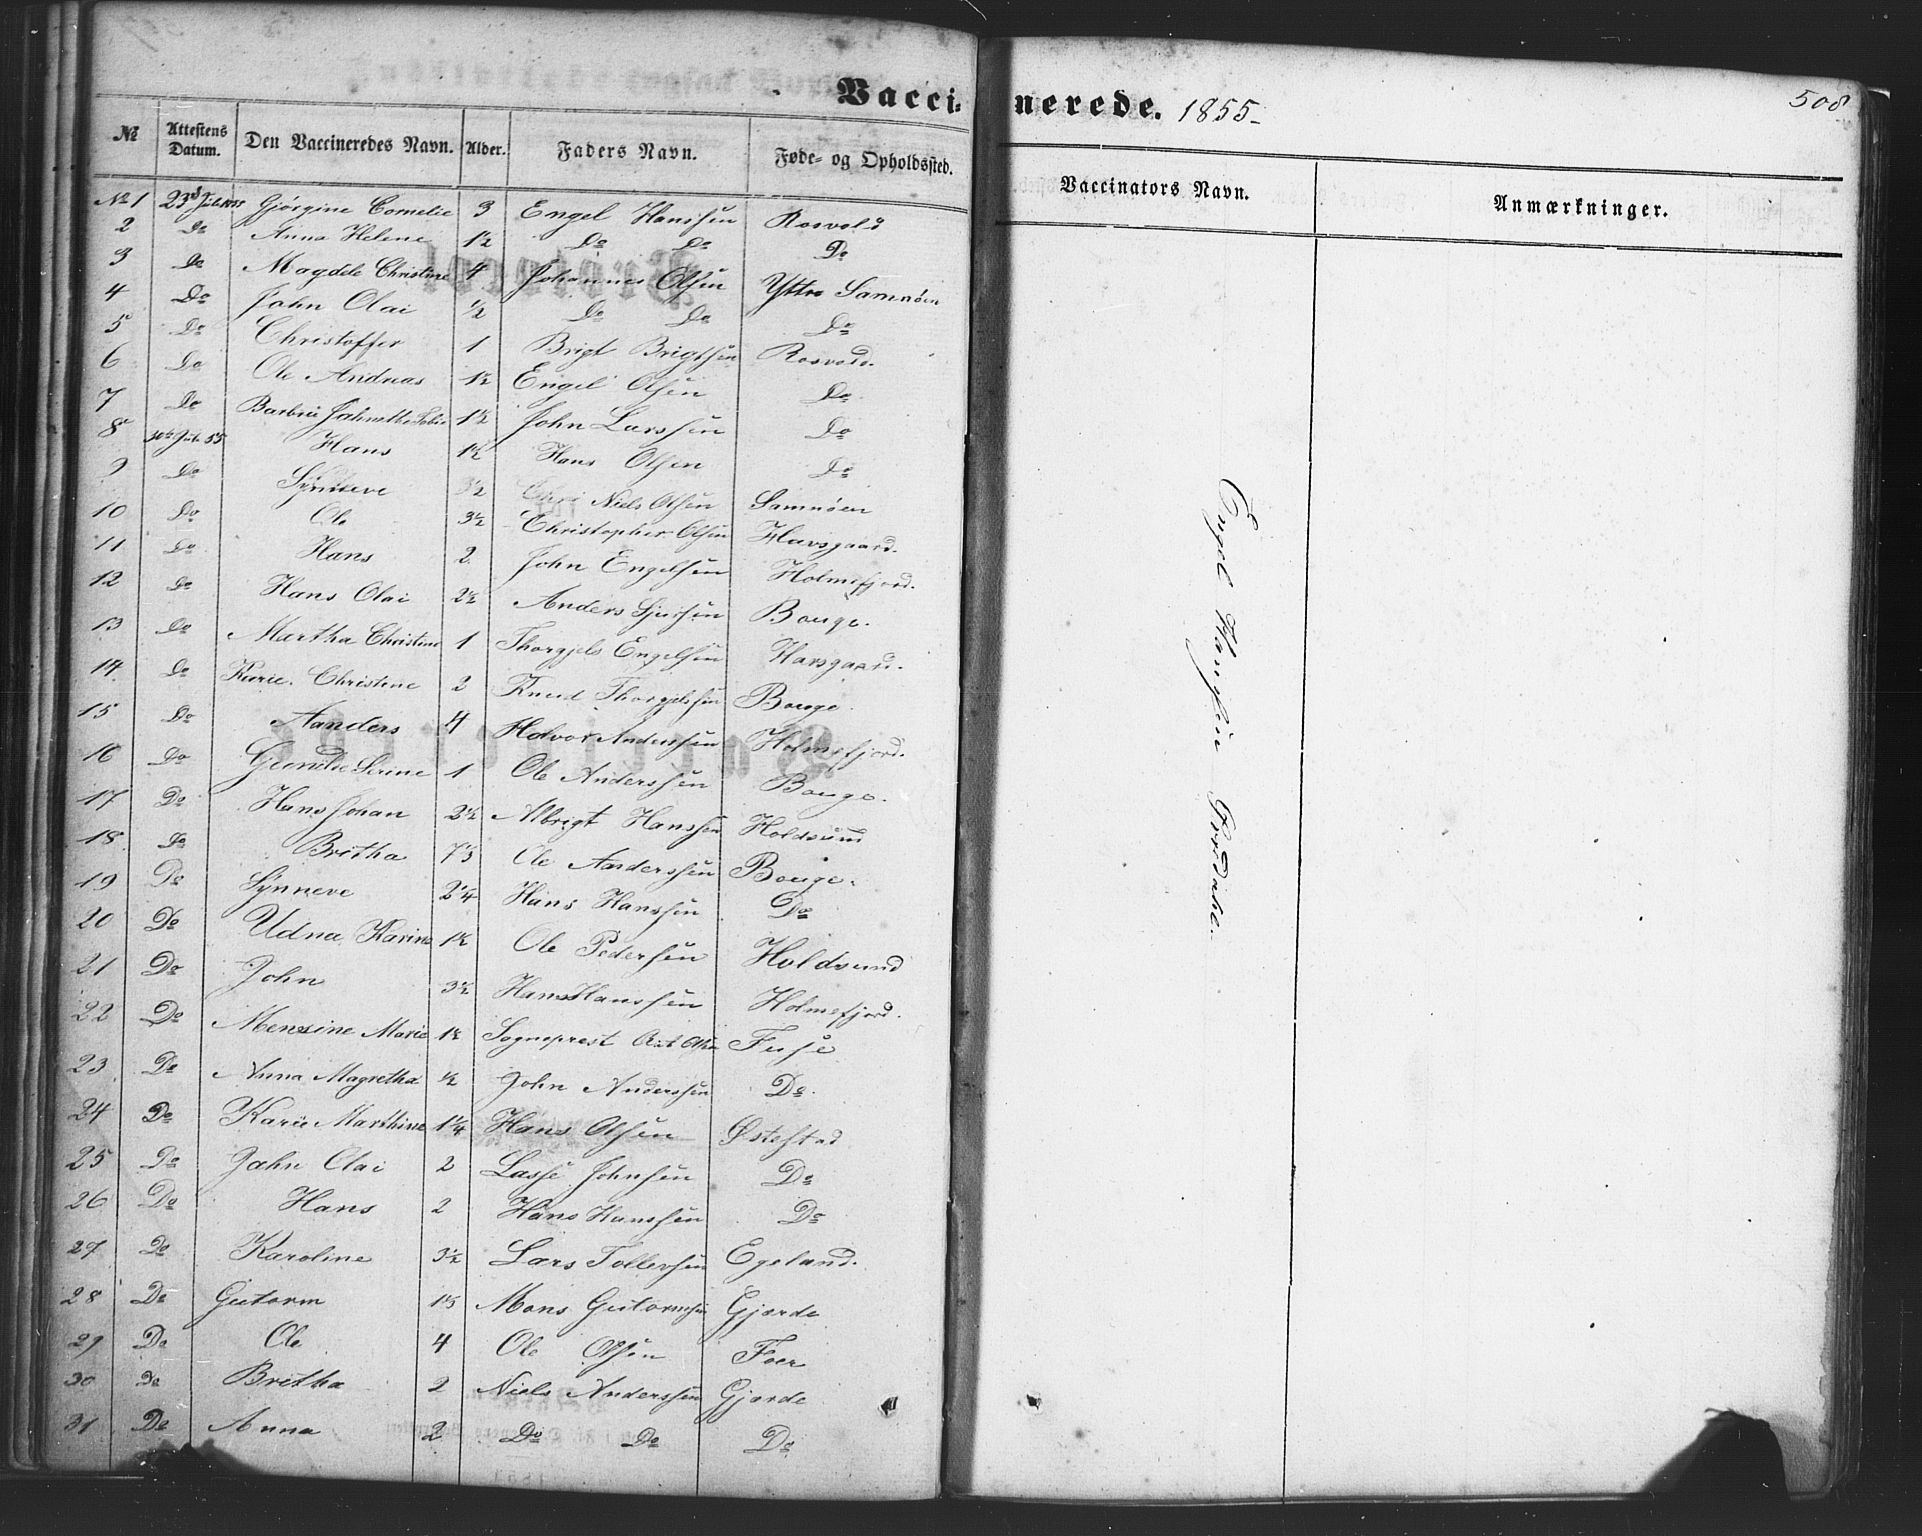 Vaccinerede. 1855- 508
№ Attestens Datum. Den Vaccineredes Navn. Alder. Faders Navn. Føde- og Opholdssted. Vaccinators Navn. Anmærkninger.
№ 1 23d Juli 1855 Gjørgine Cornelie 3 Engel Hanssen Rosvold
2 Do Anna Helene 1½ Do Do Do
3 Do Magdele Christine 4 Johannes Olsen Yttre Samnøen
4 Do Jahn Olai ½ Do Do Do
5 Do Christoffer 1 Brigt Brigtsen Rosvold.
6 Do Ole Andreas 1½ Engel Olsen Do
7 Do Barbrü Jahnethe 1½ John Larssen Do
8 30te Juli 55 Hans 1½ Hans Olsen Do
9 Do Synneve 3½ Niels Olsen Samnøen
10 Do Ole 3½ Christopher Olsen Havsgaard.
11 Do Hans 2 John Engelsen Holmefjord.
12 Do Hans Olai 2½ Anders Sjursen Bouge.
13 Do Martha Christine 1 Thorgjels Engelsen Havsgaard.
14 Do Karie Christine 2 Knud Thorgjelssen Bouge.
15 Do Aanders 4 Halvor Anderssen Holmefjord.
16 Do Serine 1 Ole Anderssen Bouge.
17 Do Hans Johan 2½ Albrigt Hanssen Holdsund
18 Do Britha Ole Anderssen Bouge.
19 Do Synneve 2¼ Hans Hanssen Do
20 Do Udna Karine 1½ Ole Pedersen Holdsund
21 Do John 3½ Hans Hanssen Holmefjord.
22 Do Mensine Marie 1½ Sogneprest Fuse
23 Do Anna Magretha ½ John Anderssen Do.
24 Do Karie Marthine 1¼ Hans Olsen Østestad
25 Do Jahn Olai 2 Lasse Johnsen Do
26 Do Hans 2 Hans Hanssen Do
27 Do Karoline 3½ Lars Tollevsen Egeland.
28 Do Gutorm Mons Gutormsen Gjærde
29 Do Ole 4 Ole Olsen Foer
30 Do Britha 2 Niels Anderssen Gjærde
31 Do Anna 2 Do Do Do
Engel Hansen